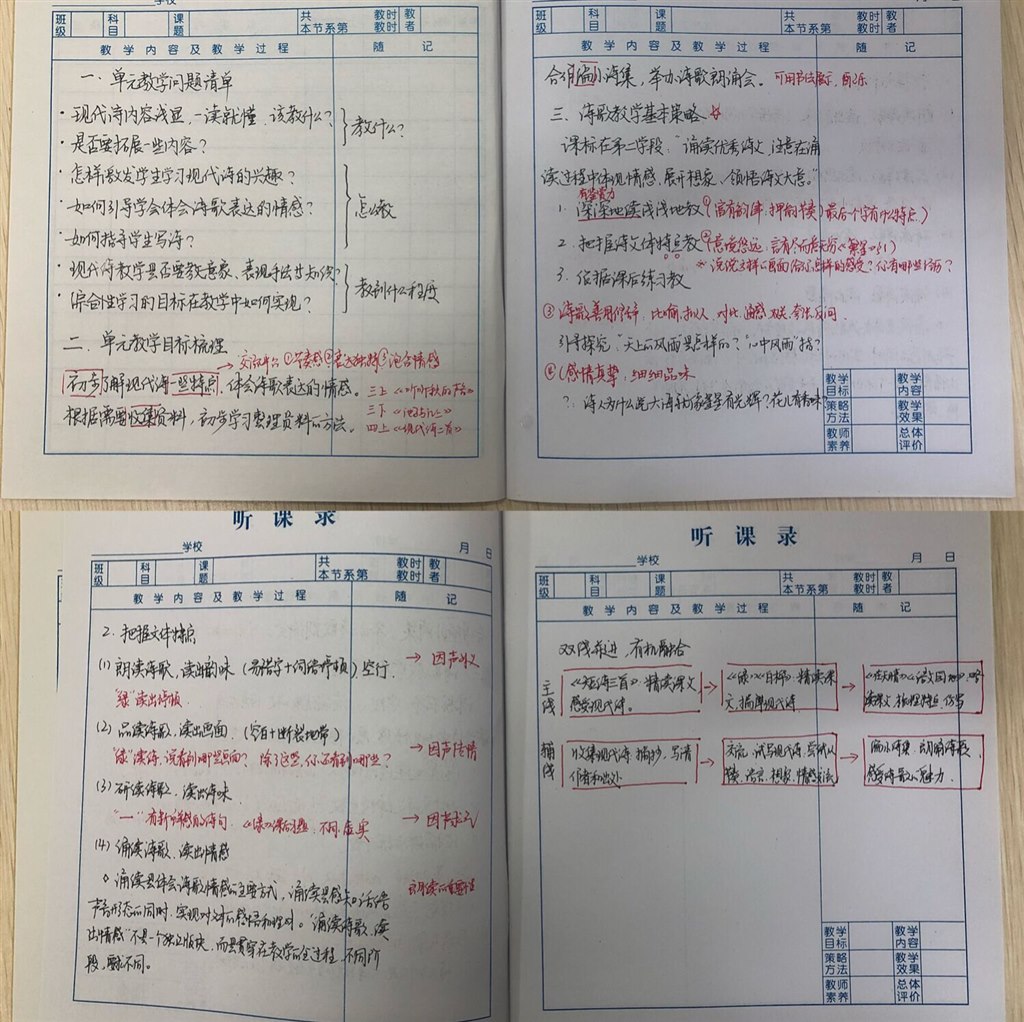 学校
班级 科目 课题 共 教时 教者
本节系第 教时
教学内容及教学过程 随记
一、单元教学问题清单
·现代诗内容浅显，一读就懂，该教什么？
·是否要拓展一些内容？
教什么？
·怎样激发学生学习现代诗的兴趣？
·如何引导学会体会诗歌表达的情感？
·如何指导学生写诗？
怎么教
·现代诗教学是否要教意象、表现手法等知识
·综合性学习的目标在教学中如何实现？
教到什么程度
二、单元教学目标梳理
→交流什么 ①节奏感 ②表达独特 ③饱含情感
初步了解现代诗一些特点，体会诗歌表达的情感。
根据需要收集资料，初步学习整理资料的方法。
三上《听听秋的声音》
三下
四上《现代诗二首》
月 日
班级 科目 课题 共 教时 教者
本节系第 教时
教学内容及教学过程 随记
合作编小诗集，举办诗歌朗诵会。可用书法展示，配乐
三、诗歌教学基本策略☆
课标在第二学段："诵读优秀诗文，注意在诵
读过程中体现情感，展开想象，领悟诗文大意。"
1. 深深地读浅浅地教
①富有韵律，押韵节奏）最后一个字有什么特点）
2. 把握诗文体特点教
②意境悠远，言有尽而意无穷《繁星》
※说说这样的画面给你怎样的感受？你有哪些体会？
3. 依据课后练习教
③诗歌善用修辞，比喻，拟人，对比，通感，双关，夸张，反问
引导探究："天上的风雨是怎样的？""心中风雨"指？
④（感情真挚，细细品味
？：诗人为什么说大海和繁星有光辉？花儿有香味？
教学目标 教学内容
策略方法 教学效果
教师素养 总体评价
听课录
学校 月 日
班级 科目 课题 共 教时 教者
本节系第 教时
教学内容及教学过程 随记
2. 把握文体特点
(1) 朗读诗歌，读出韵味（易错字+词语停顿）空行 → 因声如义
"绿"读出停顿
(2) 品读诗歌，读出画面。（空白+断裂地带）
"绿"读诗，说看到哪些画面？除了这些，你还看到哪些？ → 因声传情
(3) 研读诗歌，读出诗味
"一"有新鲜感的诗句，《绿》课后习题，不同，虚实 → 因声求气
(4) 诵读诗歌，读出情感
◇诵读是体会诗歌情感的主要方式，诵读是感知话语
声音形态的同时，实现对文本的感悟和应对。"诵读诗歌，读
出情感"不是一个独立版块，而是贯穿在教学的全过程，不同阶
段，要求不同。
朗读的重要性
听课录
学校 月 日
班级 科目 课题 共 教时 教者
本节系第 教时
教学内容及教学过程 随记
双线并进，有机融合
主线
《短诗三首》：精读课文，感受现代诗。
→《绿》《白桦》：精读课文，揣摩现代诗
→《在天晴》《语文园地》，略读课文，梳理特点，仿写
辅线
收集现代诗，摘抄，写清作者和出处
→ 交流，试写现代诗，尝试从节奏，语言，想象，情感说法
→ 编小诗集，朗诵诗歌，感受诗歌的魅力。
教学目标 教学内容
策略方法 教学效果
教师素养 总体评价